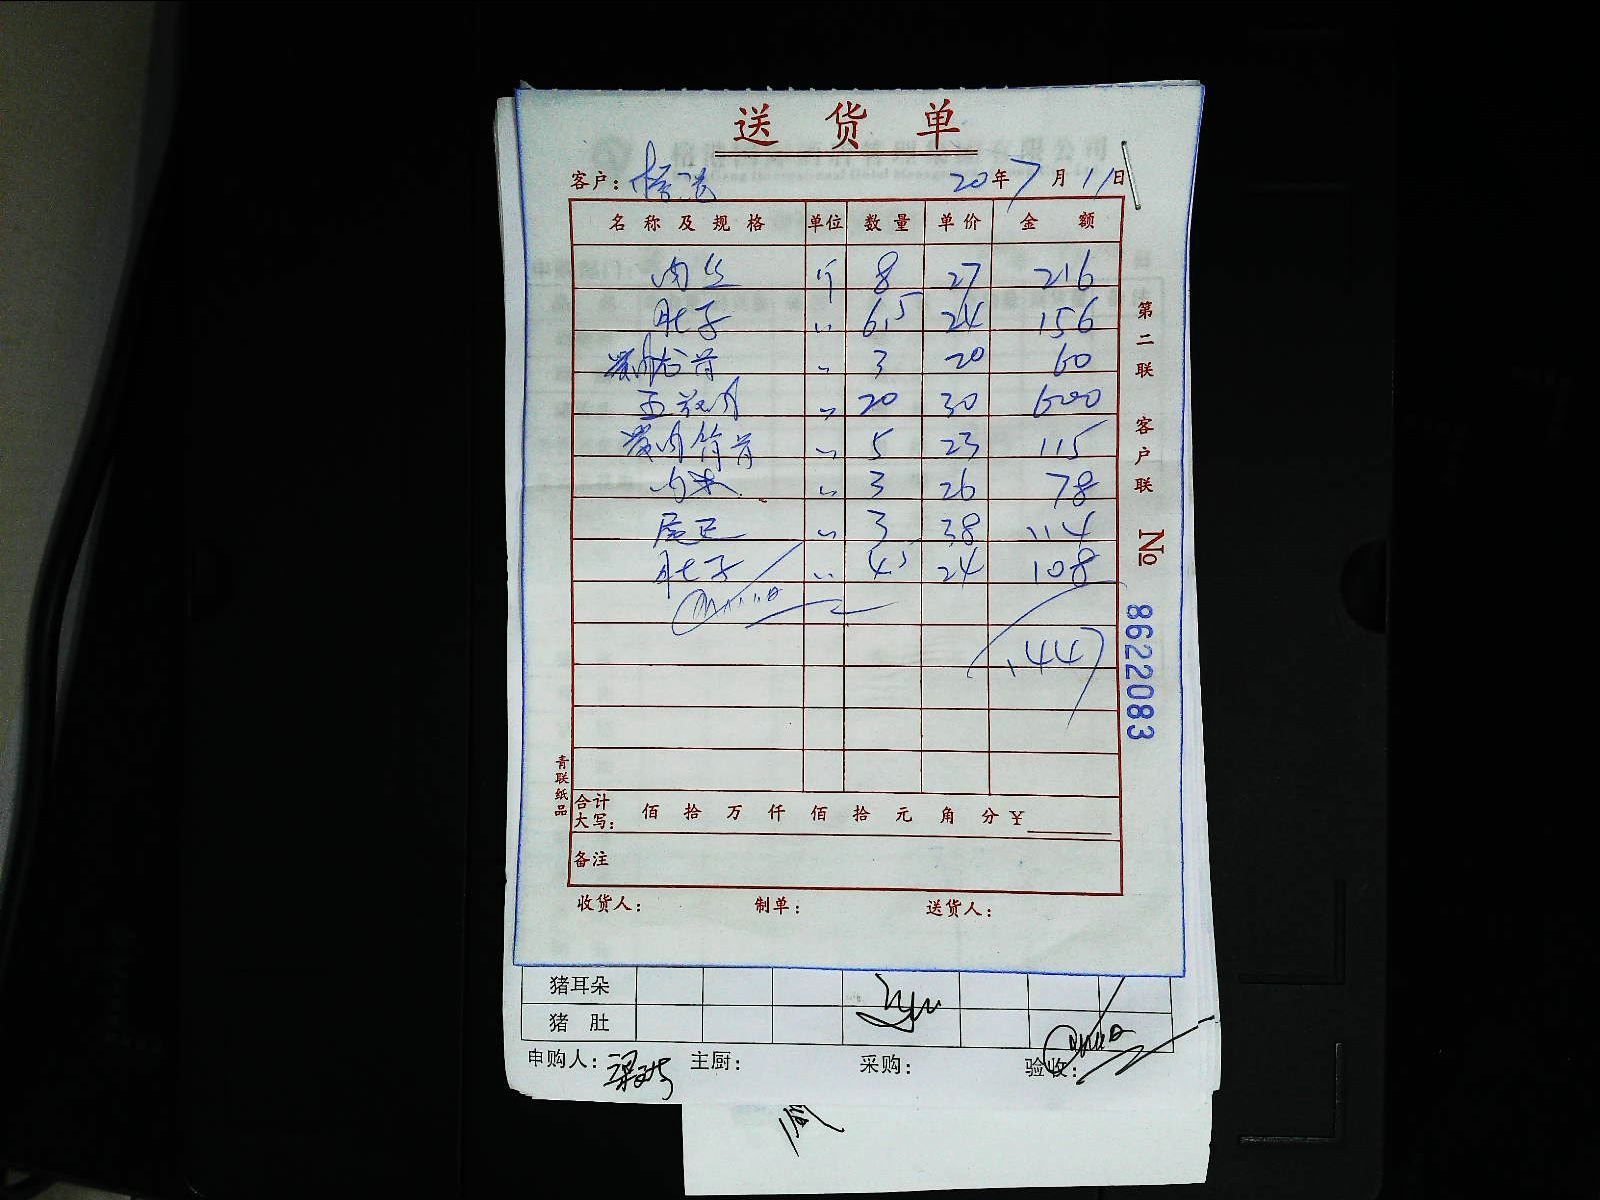 送货单
客户：格港 20年7月11日
名称及规格 单位 数量 单价 金额
肉丝 斤 8 27 216
肚子 〃 6.5 24 156
带肉龙骨 〃 3 20 60
五花肉 〃 20 30 600
带肉筒骨 〃 5 23 115
肉末 〃 3 26 78
尾正 〃 3 38 114
肚子 〃 4.5 24 108
1447
合计大写： 佰 拾 万 仟 佰 拾 元 角 分 ¥
备注
收货人： 制单： 送货人：
第二联 客户联
№ 8622083
青联纸品
猪耳朵
猪肚
申购人： 主厨： 采购： 验收：